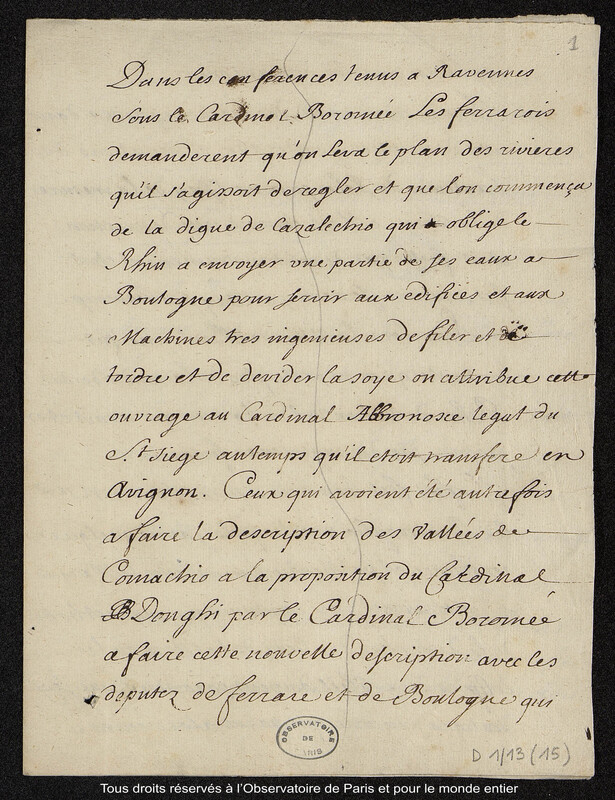 1
Dans les conferences tenus a Ravennes
sous le Cardinal Boromée Les ferrarois
demanderent qu'on Leva le plan des rivieres
qu'il s'agissoit de regler et que l'on commença
de la digue de Cazalechio qui oblige le
Rhin a envoyer une partie de ses eaux a
Boulogne pour servir aux edifices et aux
Machines tres ingenieuses de filer et de
tordre et de devider la soye on attribue cette
ouvrage au Cardinal Albronosce legat du
St. Siege au temps qu'il etoit transferé en
Avignon. Ceux qui avoient été autrefois
a faire la description des Vallées de
Comachio a la proposition du Cardinal
Donghi par le Cardinal Boromée
a faire cette nouvelle description avec les
deputez de ferrare et de Boulogne qui
OBSERVATOIRE
DE
PARIS
D 1/13 (15)
Tous droits réservés à l'Observatoire de Paris et pour le monde entier